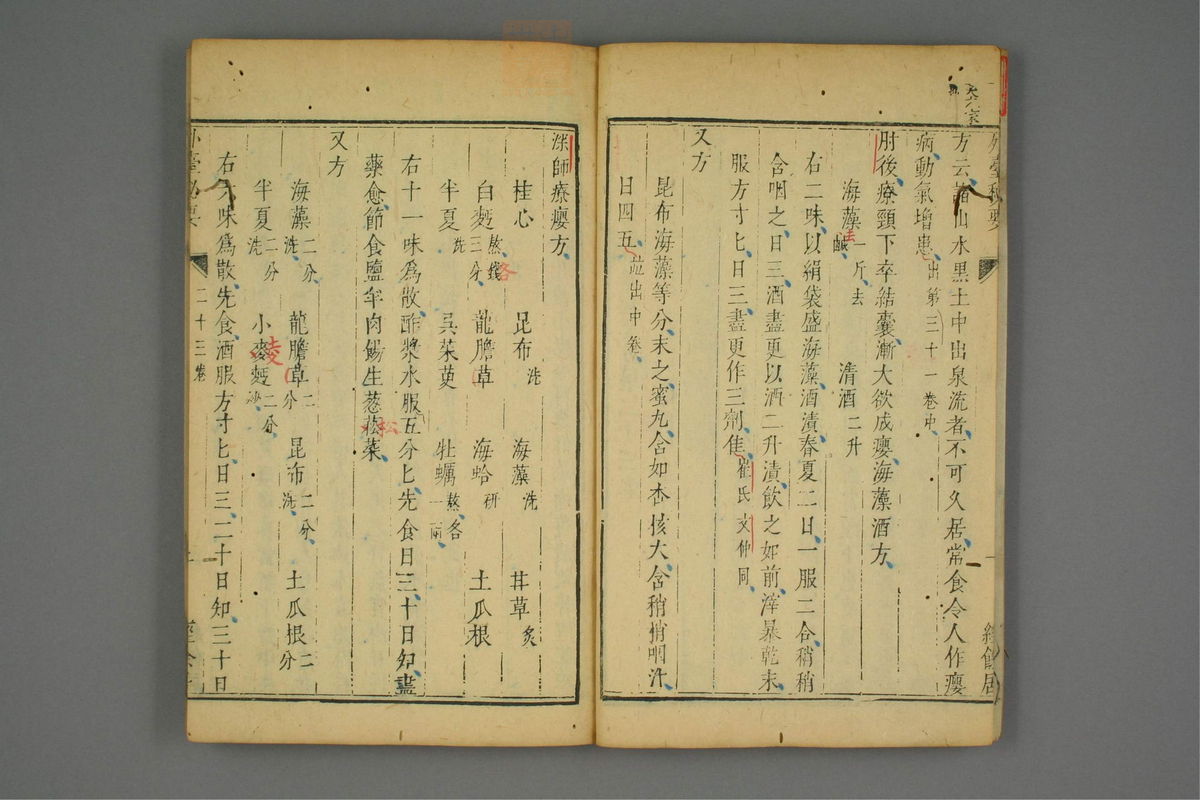 外臺秘要
方云諸山水黑土中出泉流者不可久居常食令人作癭
病動氣增患出第三十一卷中
肘後療頸下卒結囊漸大欲成癭海藻酒方
海藻一斤去鹹 清酒二升
右二味以絹袋盛海藻酒漬春夏二日一服二合稍稍
含咽之日三酒盡更以酒二升漬飲之如前滓暴乾末
服方寸匕日三盡更作三劑佳崔氏文仲同
又方
昆布海藻等分末之蜜丸含如杏核大含稍稍咽汁
日四五並出中卷
深師療癭方
桂心 昆布洗 海藻洗 甘草炙
白麪三分熬 龍膽草 海蛤研 土瓜根
半夏洗 吳茱萸 牡蠣一兩熬各
右十一味爲散酢漿水服五分匕先食日三十日知盡
藥愈節食鹽羊肉餳生葱菘菜
又方
海藻二分洗 龍膽草二分 昆布二分洗 土瓜根二分
半夏二分洗 小麥麪二分
右六味爲散先食酒服方寸匕日三二十日知三十日
外臺秘要 二十三卷